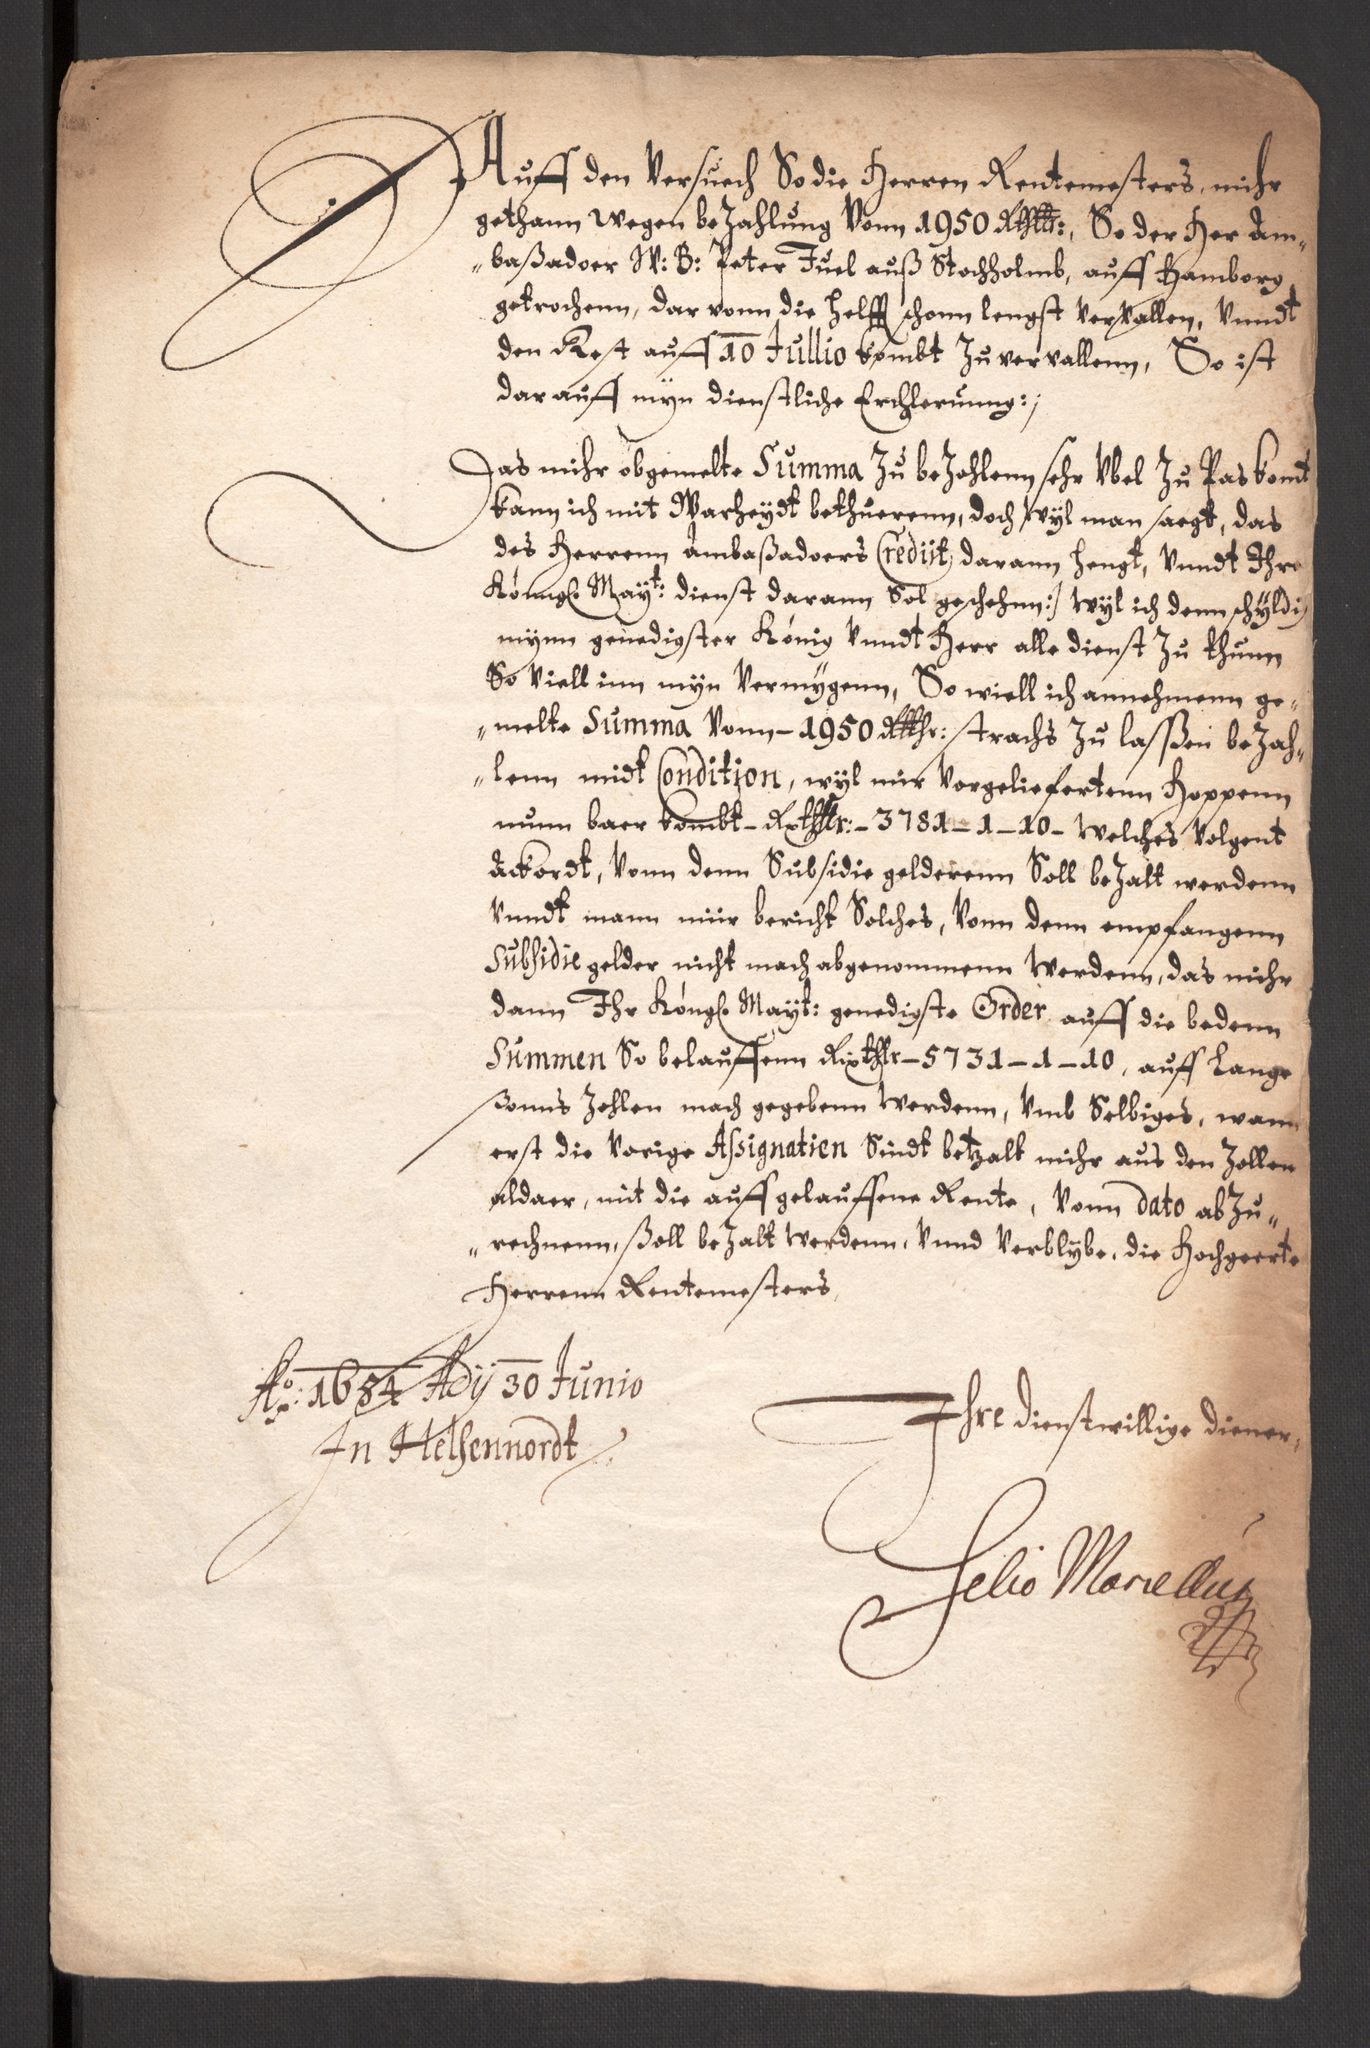 Auff den Versuch So die Herren Rentemesters, mihr
gethann wegen beZahlung Vonn 1950 Rthllr:, So der Her Am-
"baßadoer W: B: Peter Juel auß Stochholmb, auff Hamborg
getrochenn, dar vonn die helfft schonn lengst vervallen, Vnndt
den Rest auff 10 Jullio kombt Zu vervallenn, So ist
darauff myn dienstliche Erchlerunng:,
Das mihr obgemelte Summa Zu beZahlenn sehr Vbel Zu Pas komt
kann ich mit Warheydt bethuerenn, doch wyl man saegt, das
des Herrenn Ambaßadoers Crediit darann hengt, Vnndt Ihre
Könngl. Mayt: dienst darann Sol geschehnn:/ wyl ich denn schyldi
mynn genedigster König Vnndt Herr alle dienst Zu thunn
So Viell inn myn Vermygenn, So wiell ich annehmenn ge-
"melte Summa Vonn - 1950 Rthlr: strachs Zu lassen beZah-
"lenn midt Condition, wyl mir Vorgeliefertenn Hoppenn
nunn baer kombt - Rixthllr: - 3781 - 1 - 10 - welches Volgent
Ackordt, Vonn denn Subsidie gelderenn Soll beZalt werdenn
Vnndt mann miir bericht Solches, Vonn denn empfangenn
Subsidie gelder nicht mach abgenommenn werdenn, das mihr
dann Ihr Köngl. Mayt: genedigste Order auff die bedenn
Summen So belauffenn Rixthlr - 5731 - 1 - 10, auff Lange
ßonns Zohlen mach gegebenn werdenn, Vmb Selbiges, wann
erst die Vorige Assignatien Sindt betzalt mihr aus den Zollen
aldaer, mit die auffgelauffene Rente, Vonn dato abZu-
"rechnenn, ßoll beZalt werdenn, Vnnd Verblybe, die Hochgeerte
Herrenn Rentemesters,
Ao: 1654 Adij 30 Junio
In Helsennordt
Ihre dienstwillige diener
Selio Marcellus